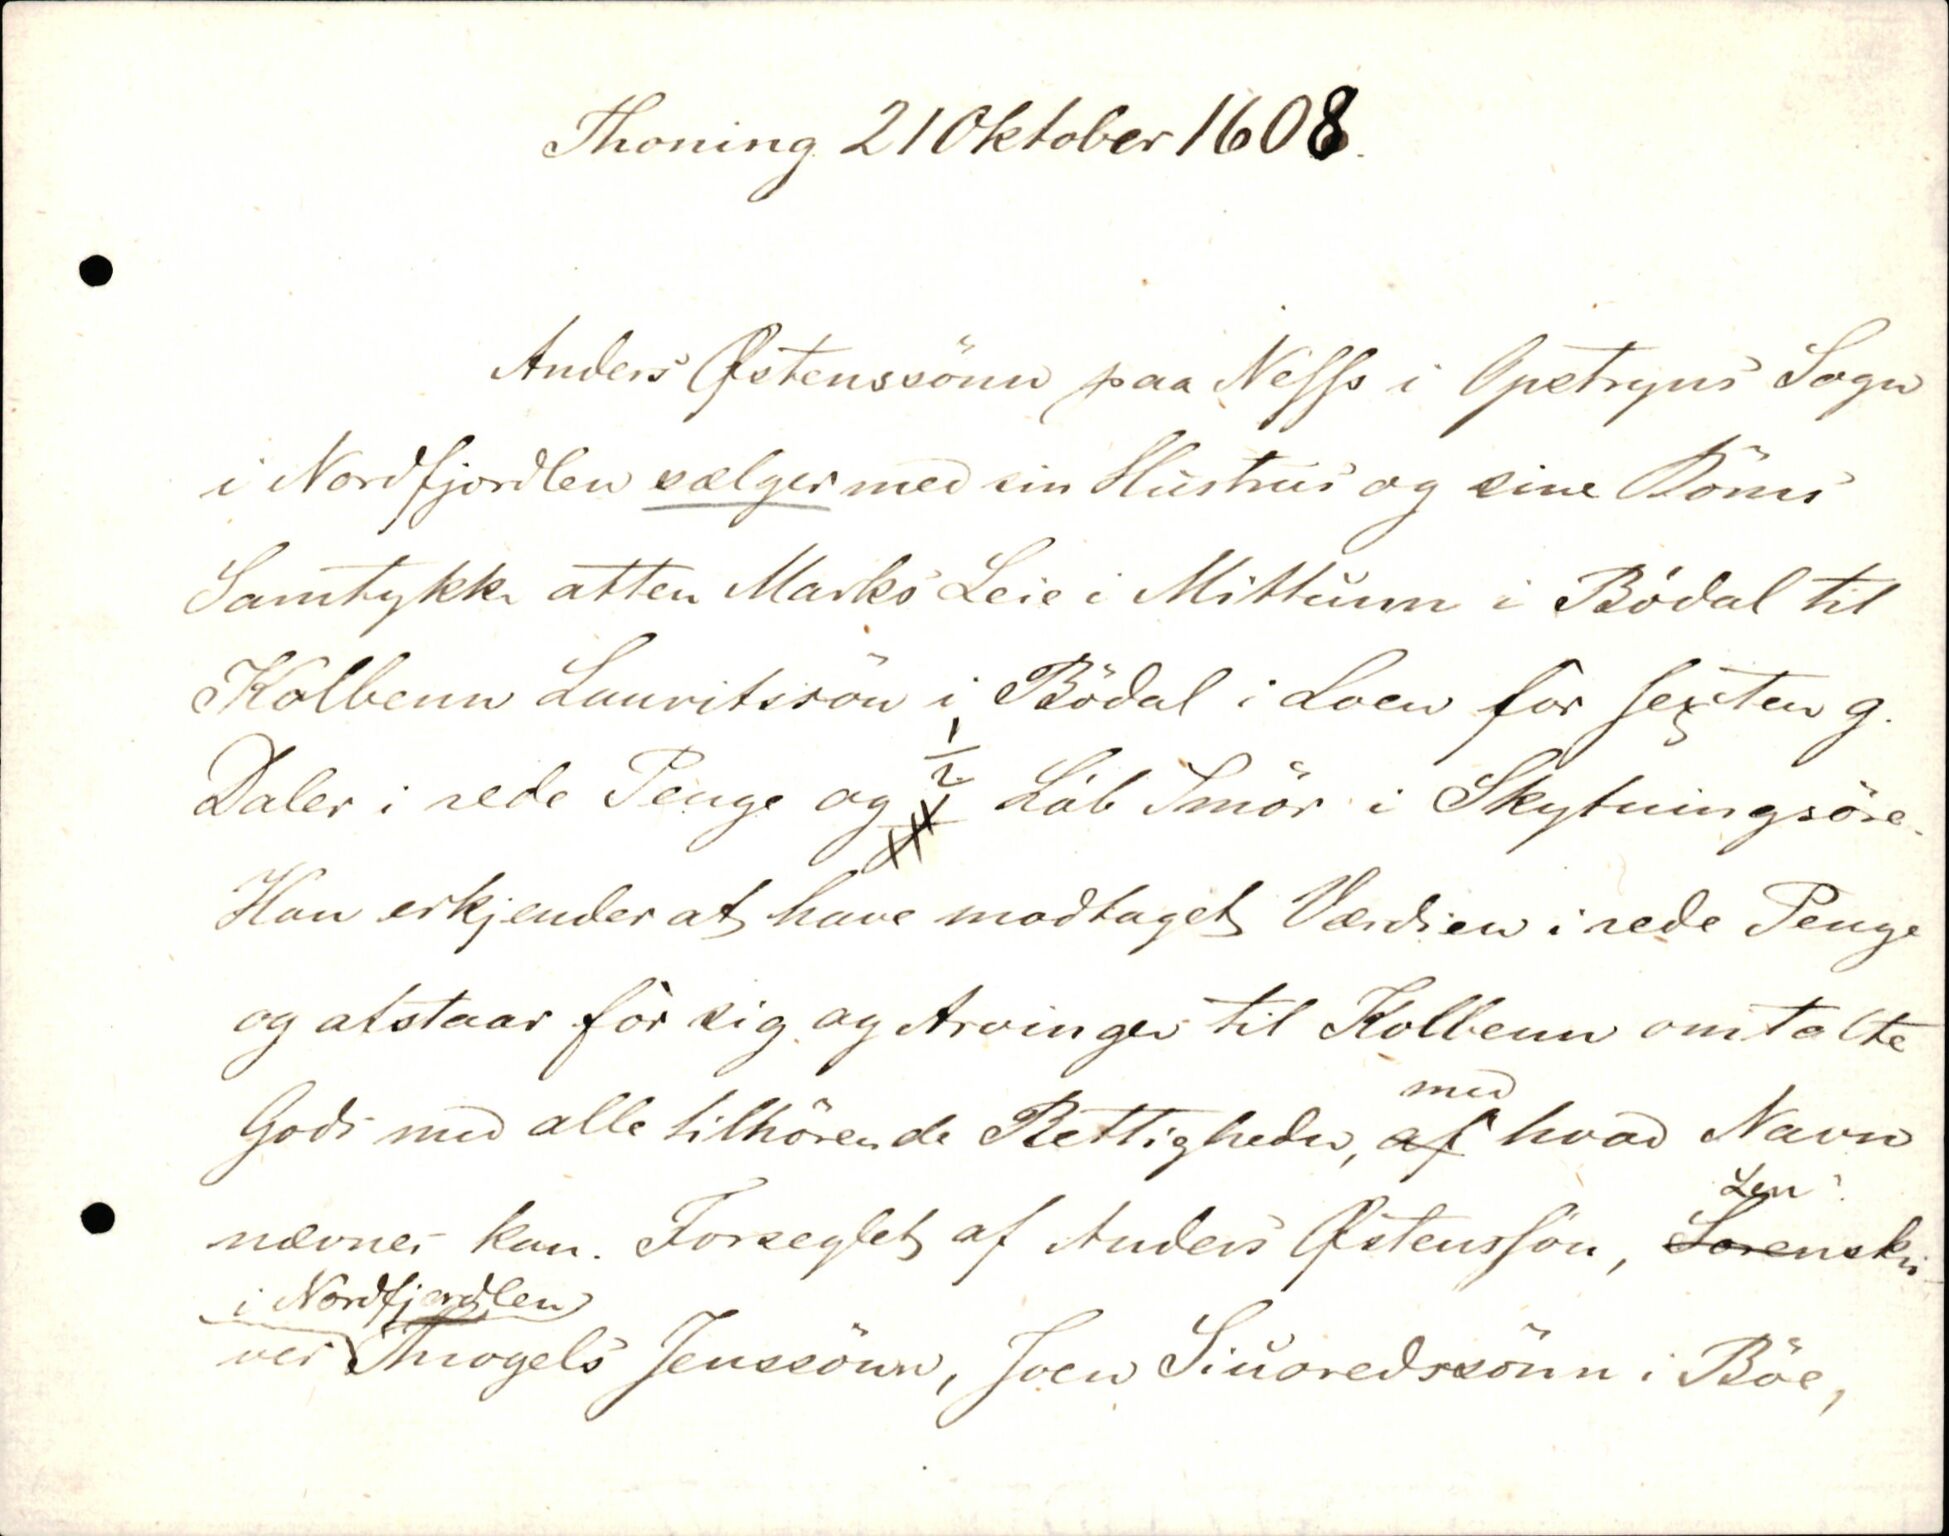 Thoning 21 Oktober 1608.
Anders Østenssönn paa Neffs i Opstryns Sogn
i Nordfjordlen sælger med sin Hustrus og sine Börns
Samtykke atten Marks Leie i Mittunn i Bödal til
Kolbenn Lauritssön i Bödal i Loen for sexten g.
Daler i rede Penge og 1/2 Löb Smör i Skytningsöre.
Han erkjender at have modtaget Værdien i rede Penge
og afstaar for sig og Arvinger til Kolbenn omtalte
Gods med alle tilhörende Rettigheder, af med hvad Navn
nævnes kan. Forseglet af Anders Østenssön, Sorenskri- Len
i Nordfjordlen
ver Throgels Jenssönn, Joen Siuoredssönn i Böe,